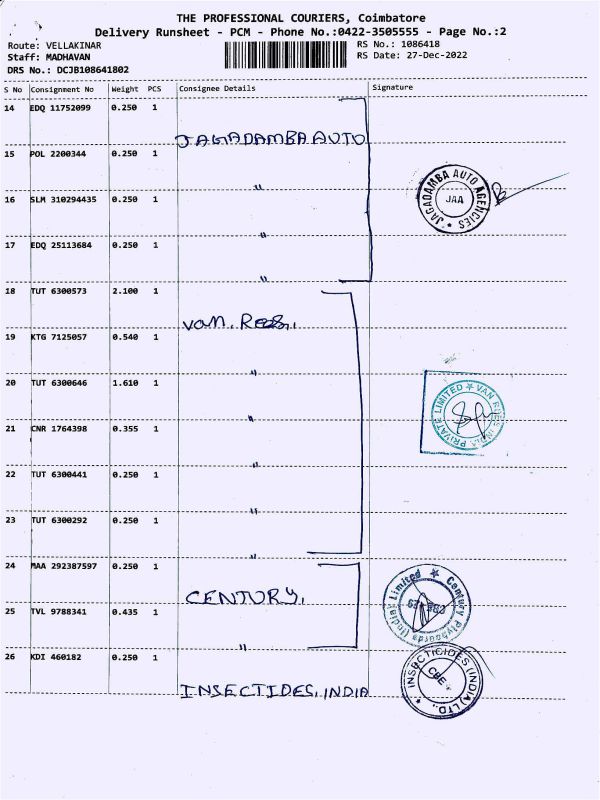 THE PROFESSIONAL COURIERS, Coimbatore
Delivery Runsheet - PCM - Phone No.:0422-3505555 - Page No.:2
Route: VELLAKINAR RS No.: 1086418
Staff: MADHAVAN RS Date: 27-Dec-2022
DRS No.: DCJB108641802
S No Consignment No Weight PCS Consignee Details Signature
14 EDQ 11752099 0.250 1
JAGADAMBA AUTO
15 POL 2200344 0.250 1
"
16 SLM 310294435 0.250 1
JAGADAMBA AUTO AGENCIES ★
JAA
"
17 EDQ 25113684 0.250 1
"
18 TUT 6300573 2.100 1
van. Rees.
19 KTG 7125057 0.540 1
"
20 TUT 6300646 1.610 1
"
VAN REES INDIA PRIVATE LIMITED ★
21 CNR 1764398 0.355 1
"
22 TUT 6300441 0.250 1
"
23 TUT 6300292 0.250 1
"
24 MAA 292387597 0.250 1
CENTURY.
Century Plyboards (India) Limited ★
25 TVL 9788341 0.435 1
"
26 KDI 460182 0.250 1
INSECTIDES, INDIA
INSECTICIDES (INDIA) LTD. ★
CBE